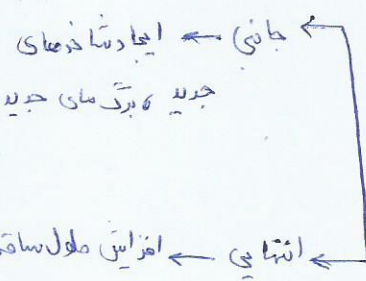 جانبی ← ایجاد شاخه‌های
جدید و برگ‌های جدید
انتهایی ← افزایش طول ساقه